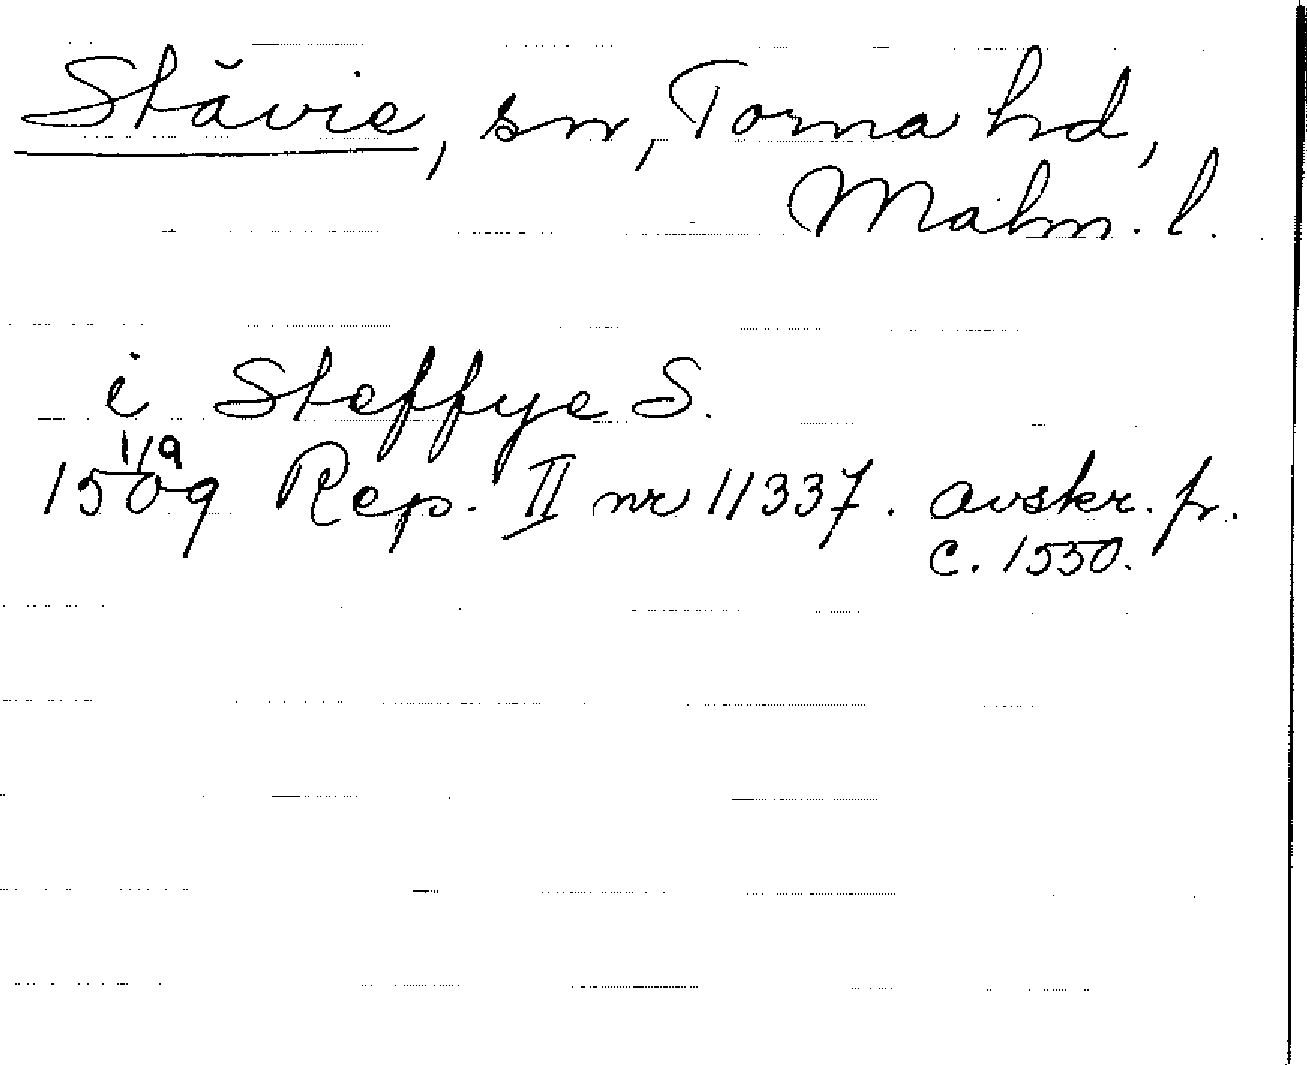 Stävie, sn, Torna hd,
Malm. l.
i Steffye S.
1/9
1509 Rep. II nr 11337. avskr. fr.
c. 1550.